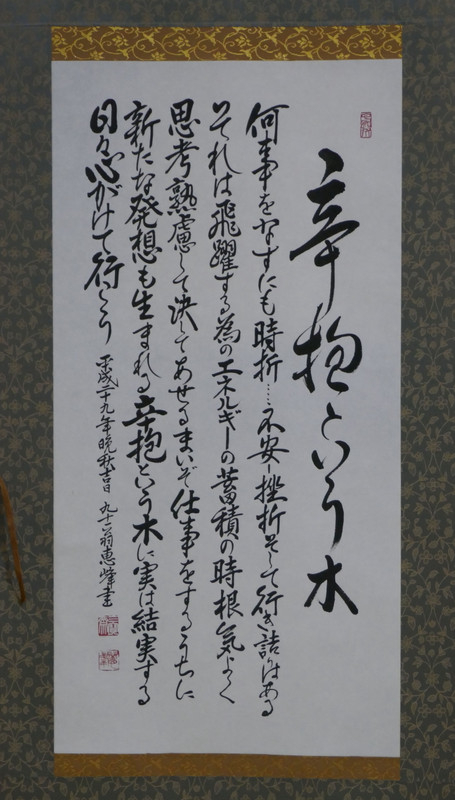 辛抱という木
何事をなすにも時折…不安ー挫折そして行き詰りはある
それは飛躍する為のエネルギーの蓄積の時根気よく
思考熟慮して決してあせるまいぞ仕事をするうちに
新たな発想も生まれる辛抱という木に実は結実する
日々心がけて行こう
平成二十九年晩秋吉日 九十一翁恵峰書